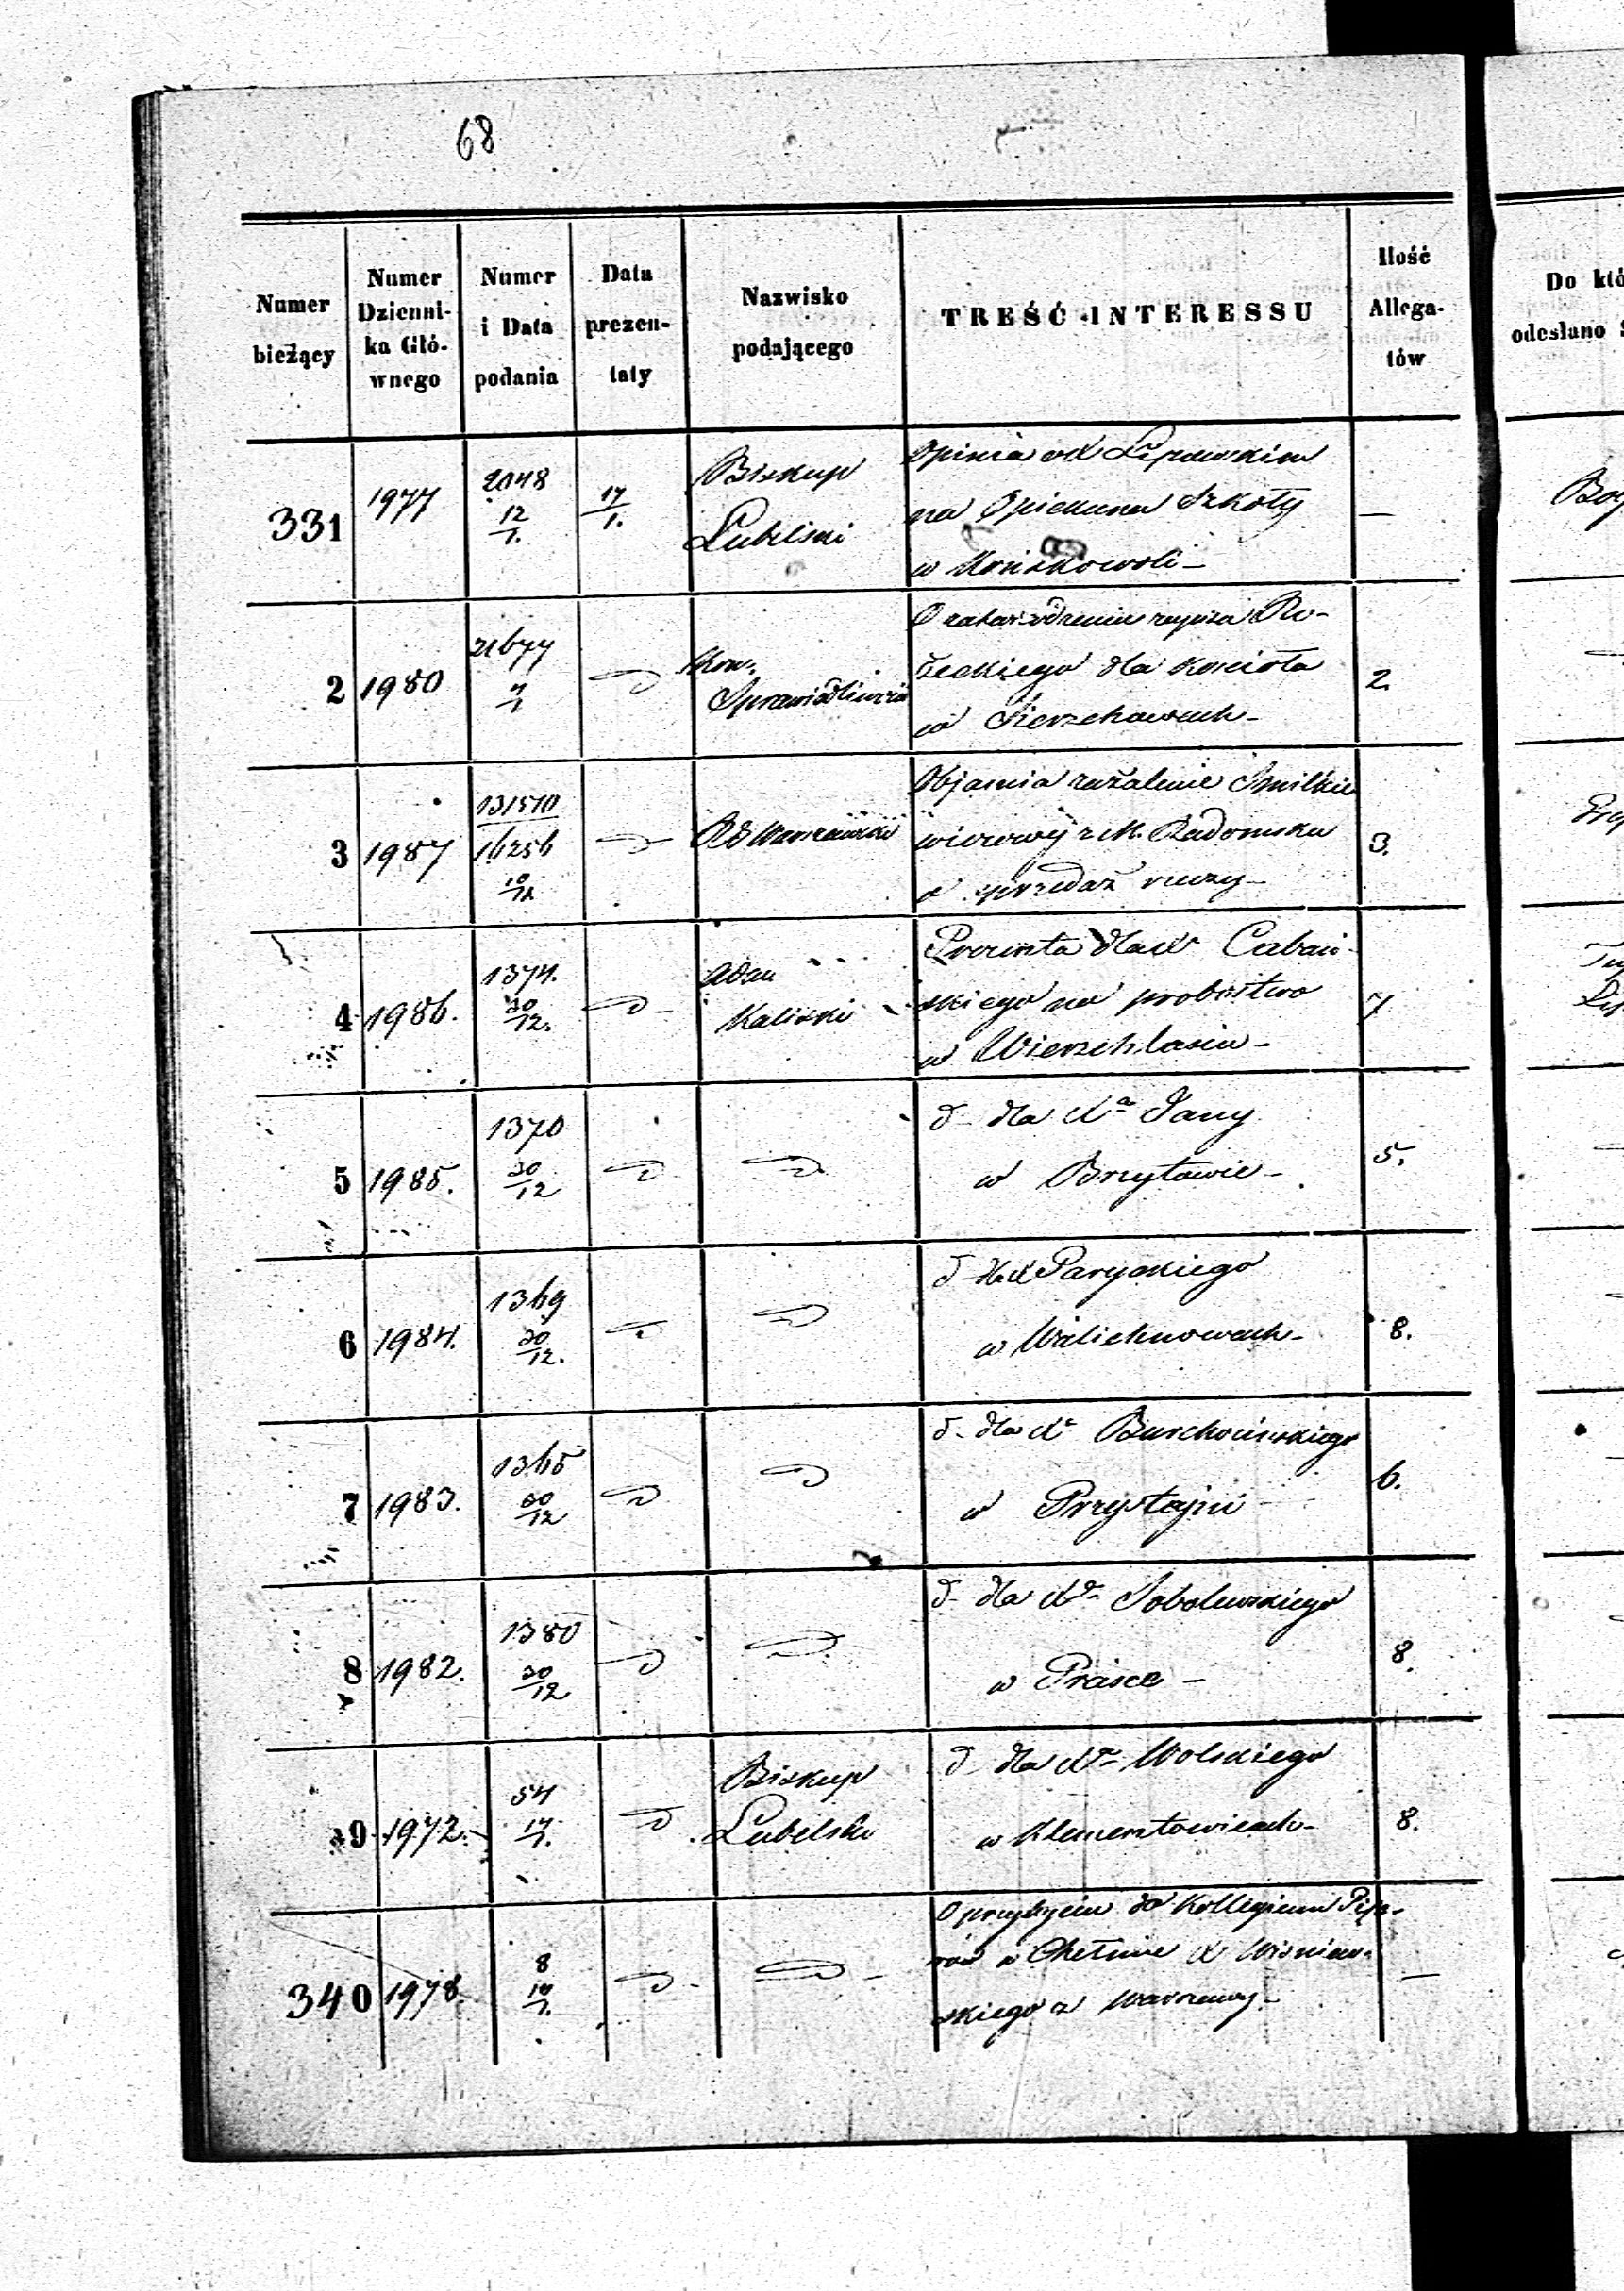 68
Numer bieżący
Numer Dzienni- ka Głó- wnego
Numer i Data podania
Data prezen- taty
Nazwisko podającego
TREŚĆ INTERESSU
Ilość Allega- tów
Do któ
odesłano
331 1977 2048 12/1. 17/1. Biskup Lubelski Opinia
na Opiekuna Szkoły
w Końskowoli —
2 1980 21677 Kom. Sprawiedliwości O zatwierdzenie zapisu Ro-
żeckiego dla kościoła
w 2.
3 1987 131570 16256 Objaśnia zażalenie Smilkie
wiczowej z M. Radomska
o sprzedaż rzeczy — 3.
4 1986. 1374. 30/12. Adm Kaliski Prezenta dla X Caban-
skiego na probostwo
w Wierzchlasiu — 7
5 1985. 1370 30/12 d dla Xa Jany
w Brzykowie — 5.
6 1984. 1369 30/12. d dla X Paryskiego
w Walichnowach — 8.
7 1983. 1365 30/12 d. dla Xa
w Przystajni 6.
8 1982. 1380 30/12 d dla Xa Sobolewskiego
w Prasce — 8.
9 1972. 54 17/1. Biskup Lubelski d dla Xa Wolskiego
w Klementowicach — 8.
340 1978. 8 O przybyciu do Kollegium Pija-
rów w Chełmie X Wiśniew-
skiego z Warszawy — —